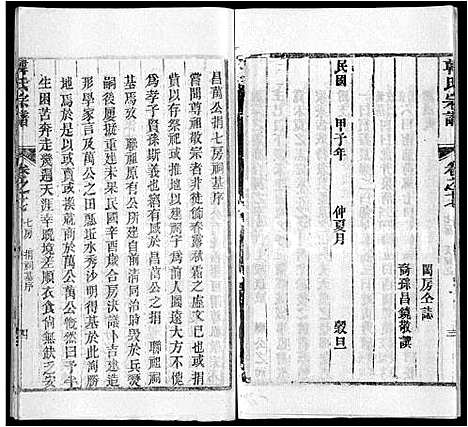 韓氏宗譜
卷之十七
三
民國 甲子年 仲夏月 穀旦
闔房仝誌
裔孫昌鏡敬譔
昌萬公捐七房祠墓序
嘗聞尊祖敬宗者非徒飾春露秋霜之虛文已也或捐
貲以存祭祀或推地以建祠宇為前人圖遠大方不愧
為孝子賢孫斯義也實於昌萬公之捐 聯祖祠
基焉攷 聯祖原有公所建自同治時毀於兵燹
嗣後屢擬重建未果民國辛酉歲合房決議卜吉建造
形學家言及萬公之田 近水秀沙明得基於此淘勝
地焉於是以情商於萬公萬公幾然曰余
生困苦奔走幾遍天涯幸晚境差順衣食尚無缺乏安
韓氏宗譜
卷之十七
七房 捐祠墓序
四